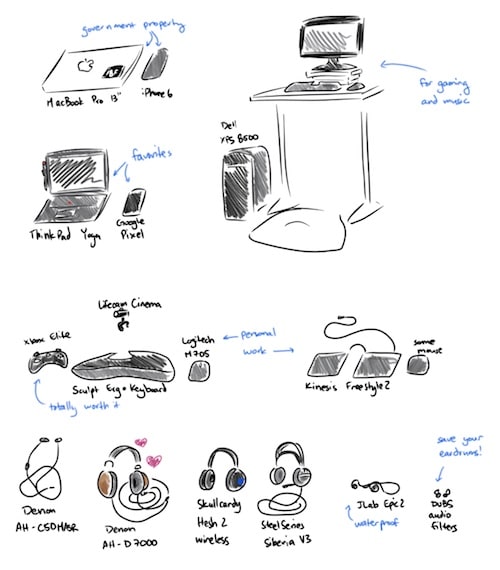 government property
MacBook Pro 13"
iPhone 6
for gaming
and music
Dell
XPS 8500
favorites
ThinkPad Yoga
Google
Pixel
Lifecam Cinema
xbox Elite
Sculpt Ergo Keyboard
Logitech
M705
totally worth it
personal
work
Kinesis Freestyle 2
same
mouse
Denon
AH-C50MBSR
Denon
AH-D7000
Skullcandy
Hesh 2
wireless
SteelSeries
Siberia V3
JLab Epic 2
waterproof
save your
eardrums!
DUBS
audio
filters